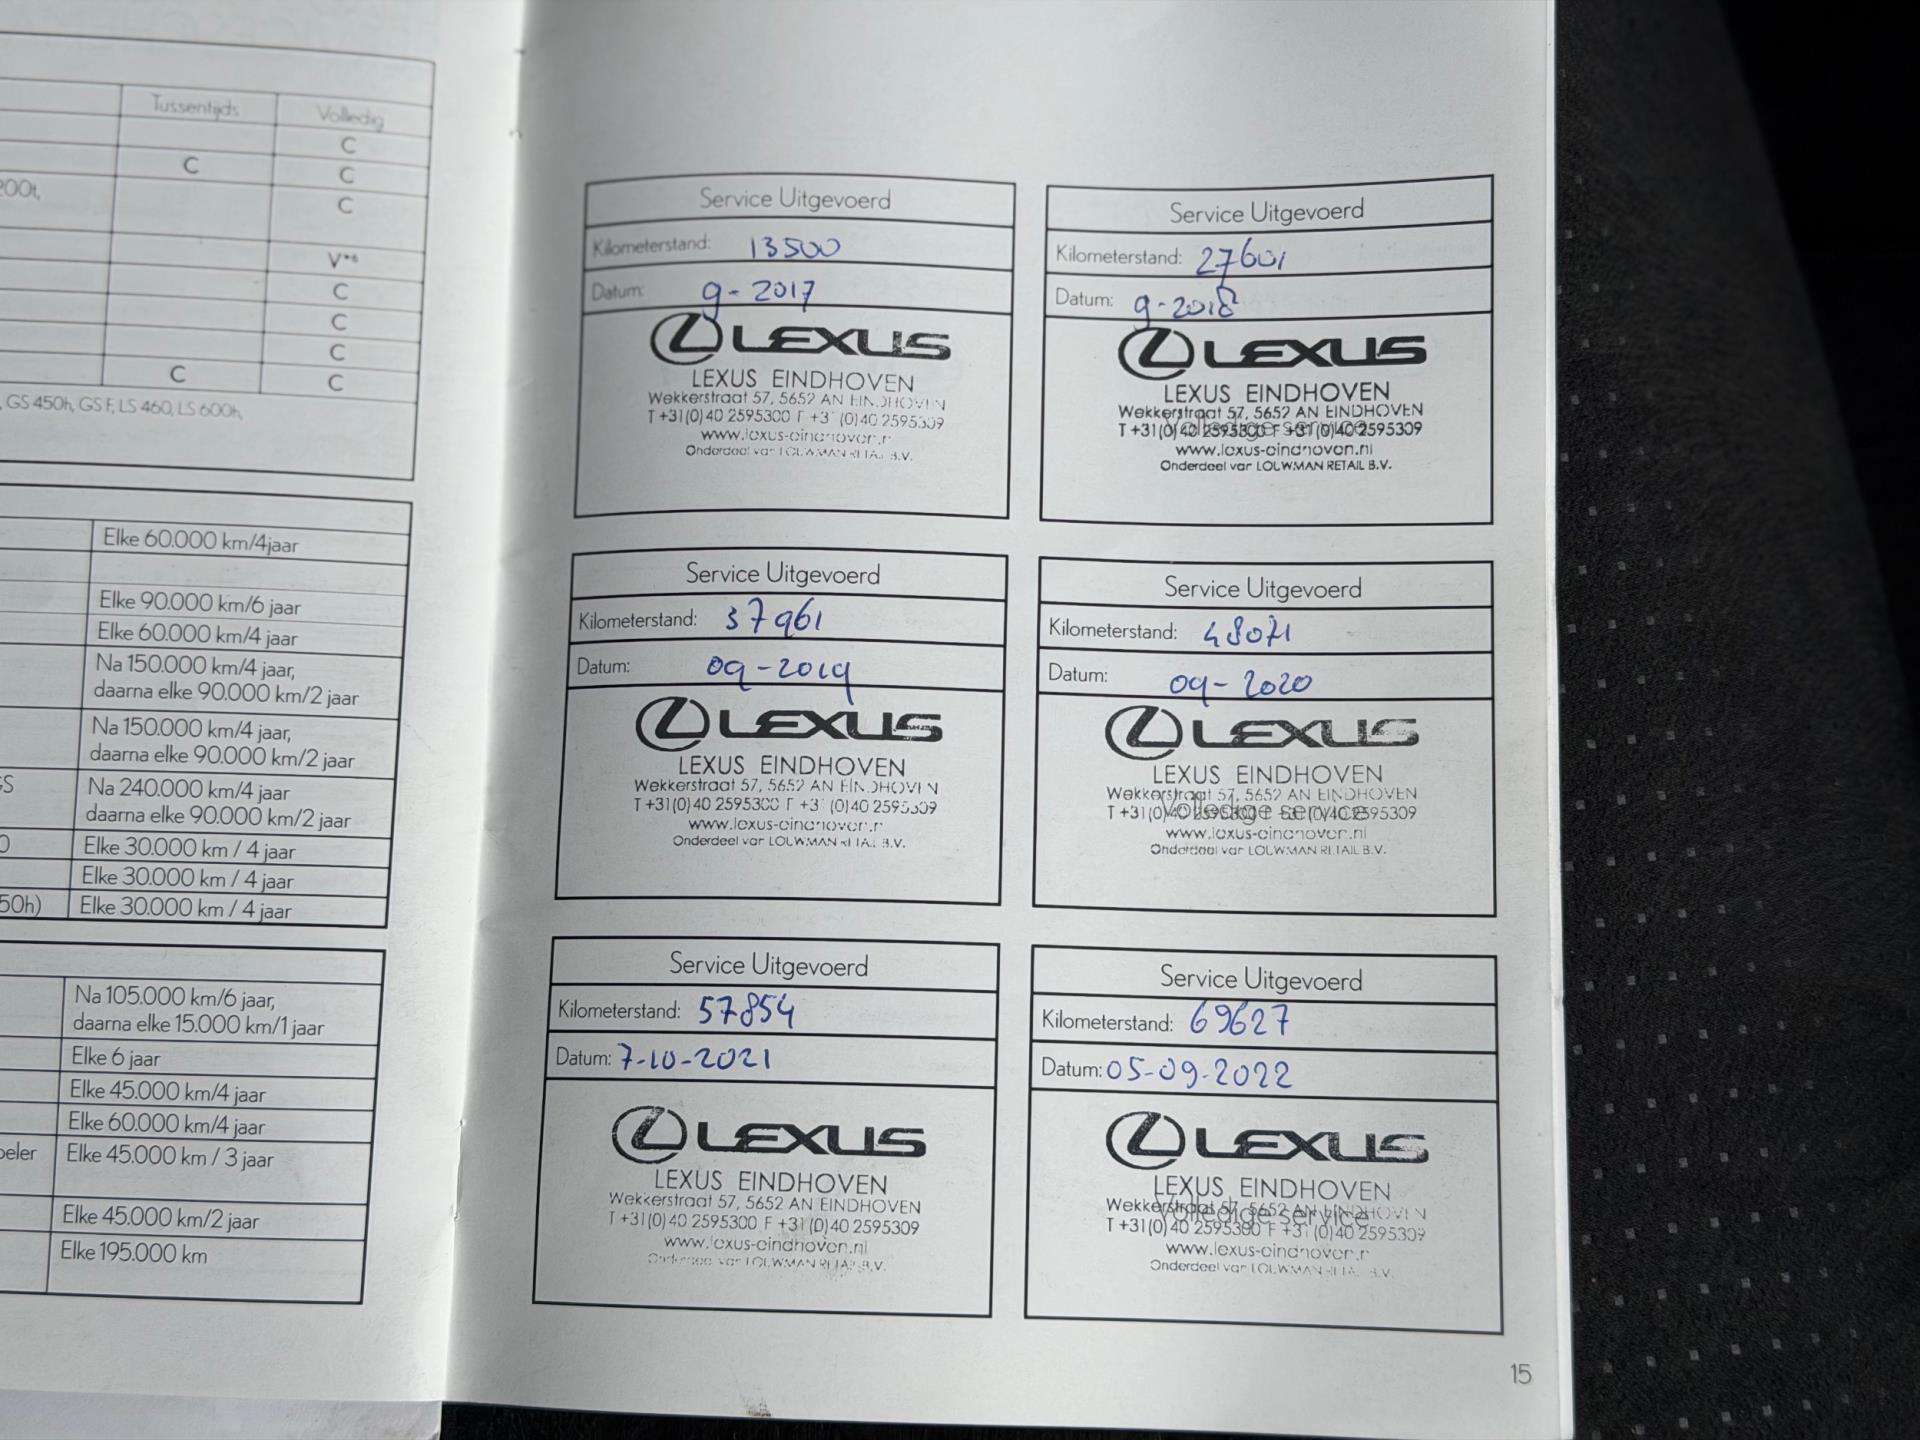 Tussentijds Volledig
C
C C
200t, C
V*6
C
C
C
C C
, GS 450h, GS F, LS 460, LS 600h,
Elke 60.000 km/4jaar
Elke 90.000 km/6 jaar
Elke 60.000 km/4 jaar
Na 150.000 km/4 jaar,
daarna elke 90.000 km/2 jaar
Na 150.000 km/4 jaar,
daarna elke 90.000 km/2 jaar
GS Na 240.000 km/4 jaar
daarna elke 90.000 km/2 jaar
0 Elke 30.000 km / 4 jaar
Elke 30.000 km / 4 jaar
50h) Elke 30.000 km / 4 jaar
Na 105.000 km/6 jaar,
daarna elke 15.000 km/1 jaar
Elke 6 jaar
Elke 45.000 km/4 jaar
Elke 60.000 km/4 jaar
peler Elke 45.000 km / 3 jaar
Elke 45.000 km/2 jaar
Elke 195.000 km
Service Uitgevoerd
Kilometerstand: 13500
Datum: 9-2017
LEXUS
LEXUS EINDHOVEN
Wekkerstraat 57, 5652 AN EINDHOVEN
T +31(0)40 2595300 F +31(0)40 2595309
www.lexus-eindhoven.nl
Onderdeel van LOUWMAN RETAIL B.V.
Service Uitgevoerd
Kilometerstand: 27601
Datum: 9-2018
LEXUS
LEXUS EINDHOVEN
Wekkerstraat 57, 5652 AN EINDHOVEN
Volledige service
T +31(0)40 2595300 F +31(0)40 2595309
www.lexus-eindhoven.nl
Onderdeel van LOUWMAN RETAIL B.V.
Service Uitgevoerd
Kilometerstand: 37961
Datum: 09-2019
LEXUS
LEXUS EINDHOVEN
Wekkerstraat 57, 5652 AN EINDHOVEN
T +31(0)40 2595300 F +31(0)40 2595309
www.lexus-eindhoven.nl
Onderdeel van LOUWMAN RETAIL B.V.
Service Uitgevoerd
Kilometerstand: 48071
Datum: 09-2020
LEXUS
LEXUS EINDHOVEN
Wekkerstraat 57, 5652 AN EINDHOVEN
Volledige service
T +31(0)40 2595300 F +31(0)40 2595309
www.lexus-eindhoven.nl
Onderdeel van LOUWMAN RETAIL B.V.
Service Uitgevoerd
Kilometerstand: 57854
Datum: 7-10-2021
LEXUS
LEXUS EINDHOVEN
Wekkerstraat 57, 5652 AN EINDHOVEN
T +31(0)40 2595300 F +31(0)40 2595309
www.lexus-eindhoven.nl
Onderdeel van LOUWMAN RETAIL B.V.
Service Uitgevoerd
Kilometerstand: 69627
Datum: 05-09-2022
LEXUS
LEXUS EINDHOVEN
Wekkerstraat 57, 5652 AN EINDHOVEN
Volledige service
T +31(0)40 2595300 F +31(0)40 2595309
www.lexus-eindhoven.nl
Onderdeel van LOUWMAN RETAIL B.V.
15